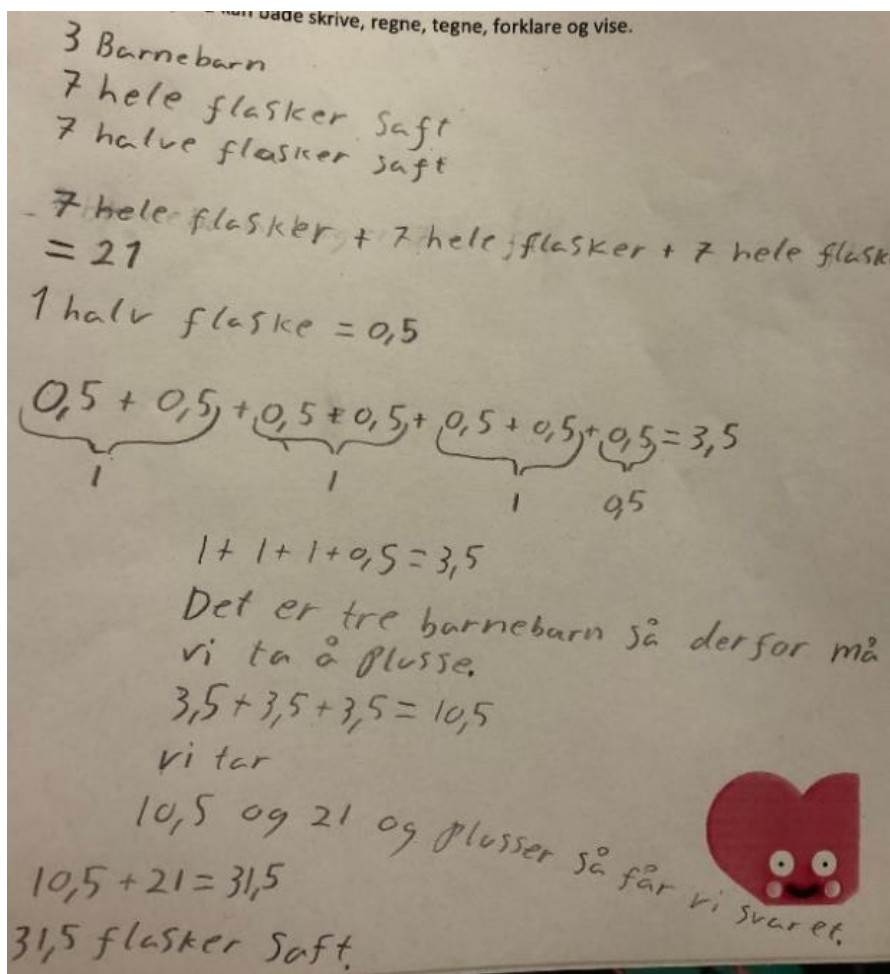 både skrive, regne, tegne, forklare og vise.
3 Barnebarn
7 hele flasker saft
7 halve flasker saft
7 hele flasker + 7 hele flasker + 7 hele flask
= 21
1 halv flaske = 0,5
0,5 + 0,5 + 0,5 + 0,5 + 0,5 + 0,5 + 0,5 = 3,5
1 1 1 0,5
1 + 1 + 1 + 0,5 = 3,5
Det er tre barnebarn så derfor må
vi ta å plusse.
3,5 + 3,5 + 3,5 = 10,5
vi tar
10,5 og 21 og plusser så får vi svaret.
10,5 + 21 = 31,5
31,5 flasker saft.